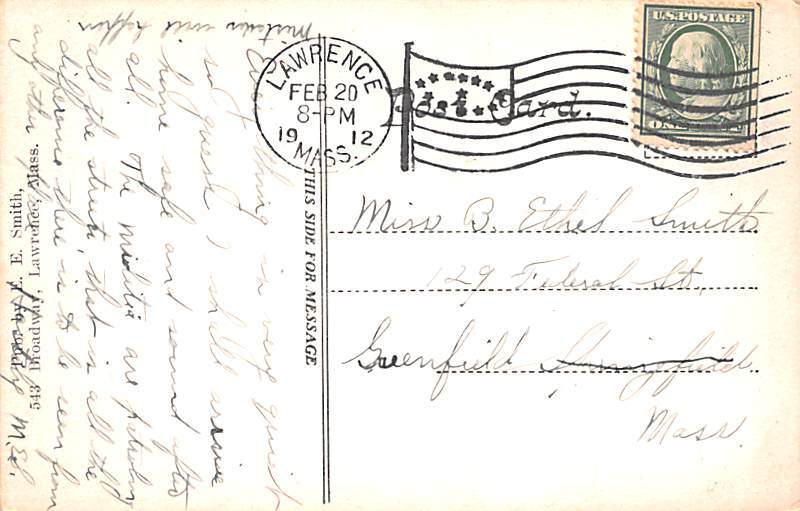 Mistakes will happen
Everything is very quiet
so I guess I shall arrive
home safe and sound after
all. The militia are patroling
all the streets that is all the
difference there is to be seen from
any other place. M.E.S.
Photo by F. E. Smith,
543 Broadway, Lawrence, Mass.
THIS SIDE FOR MESSAGE
LAWRENCE
FEB 20
8-PM
1912
MASS.
Post Card.
U.S. POSTAGE
ONE CENT
Miss B. Ethel Smith
129 Federal St.,
Greenfield Springfield
Mass.